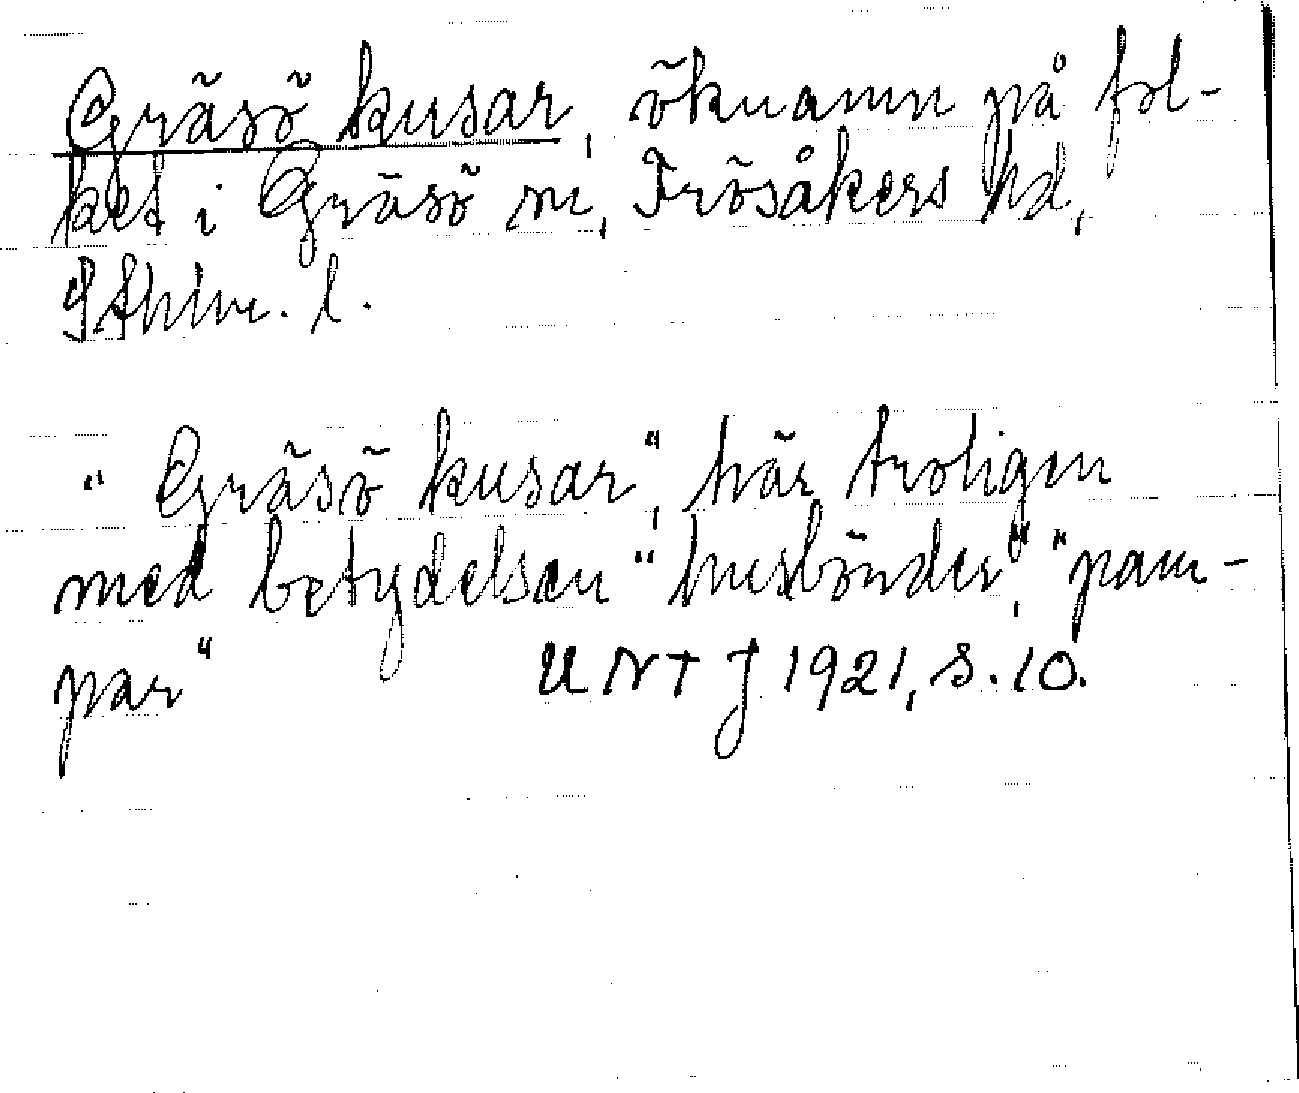 Gräsö kusar, öknamn på fol-
ket i Gräsö sn, Frösåkers hd,
Sthlms. l.
"Gräsö kusar", här troligen
med betydelsen "husbönder", "pam-
par" UNT J 1921, s. 10.